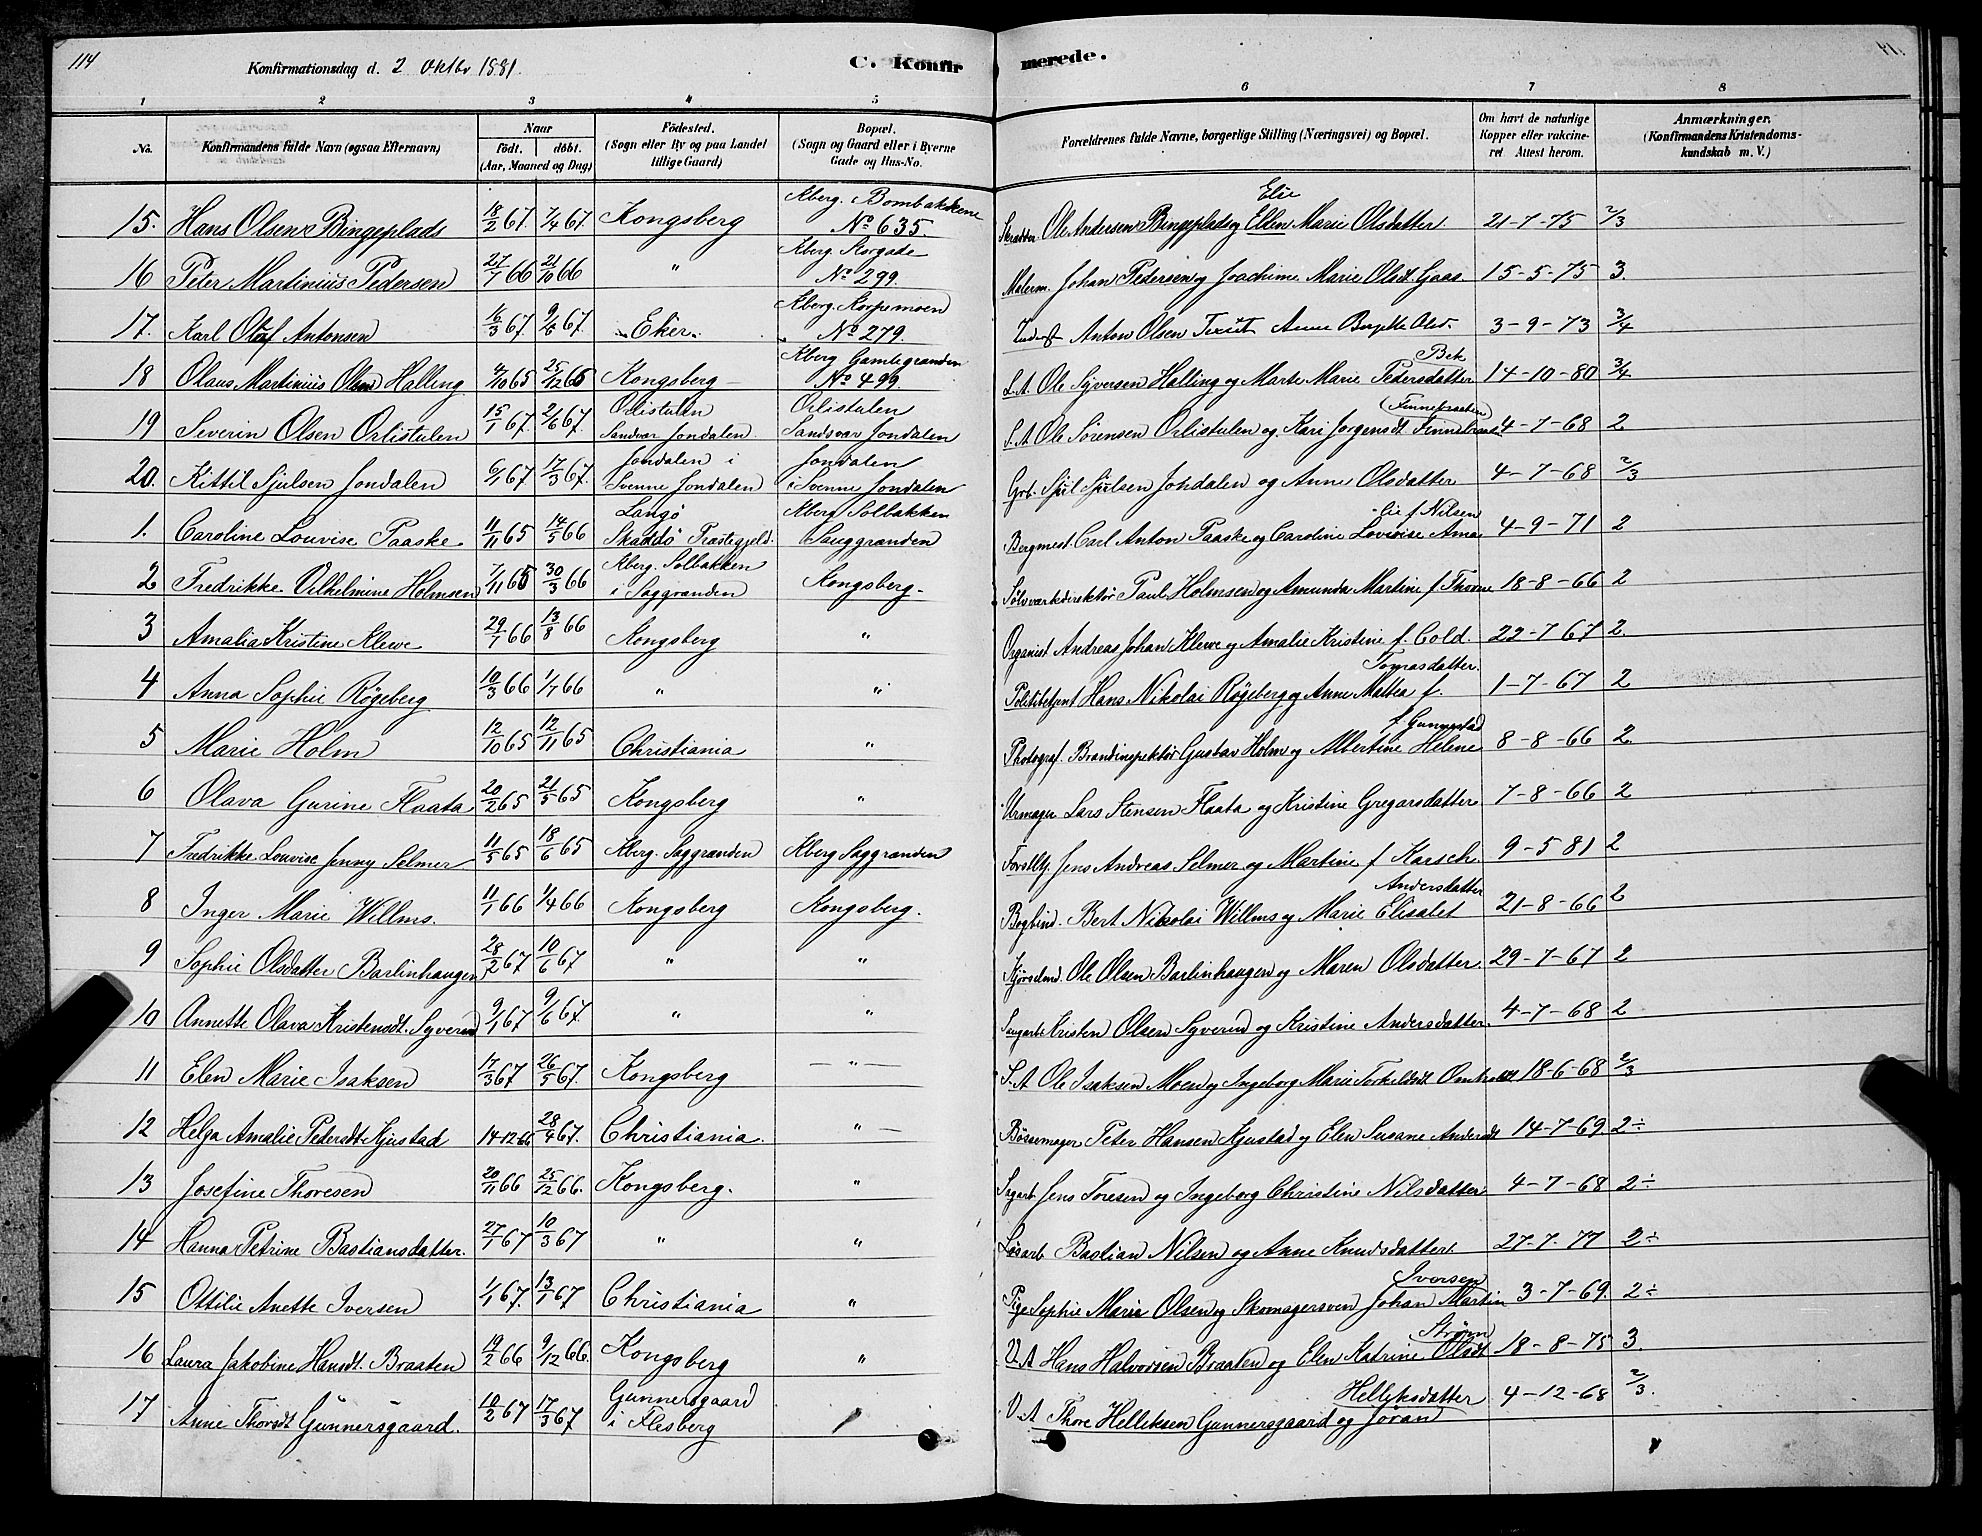 114
Konfirmationsdag d. 2 Oktbr 1881.
C. Konfirmerede.
1 2 3 4 5 6 7 8
No.
Konfirmandens fulde Navn (ogsaa Efternavn)
Naar født. døbt. (Aar, Maaned og Dag)
Födested. (Sogn eller By og paa Landet tillige Gaard)
Bopæl. (Sogn og Gaard eller i Byerne Gade og Hus-No.
Forældrenes fulde Navne, borgerlige Stilling (Næringsvei) og Bopæl.
Om havt de naturlige Kopper eller vakcineret Attest herom.
Anmærkninger. (Konfirmandens Kristendomskundskab m. V.)
15. Hans Olsen Bingeplads 18/2 67. 7/4 67. Kongsberg Kberg. Bombakkene No 635. Skrædder Ole Andersen Bingeplads og Ellen Elie Marie Olsdatter. 21-7-75 2/3
16 Peter Martinius Pedersen 27/7 66 21/10 66 " Kberg. Storgade No 299. Malerm. Johan Pedersen og Joachime Marie Olsdt. Gaas 15-5-75 3.
17. Karl Olaf Antonsen 16/3 67. 9/6 67. Eker. Kberg. Korpemoen No 279. Anton Olsen Anne Birgitte Olsd. 3-9-73 3/4
18 Olaus Martinius Olsen Halling 4/10 65 25/12 65 Kongsberg Kberg Gamlegranden No 499. S.A. Ole Syversen Halling og Marte Marie Pedersdatter Bek 14-10-80 3/4
19 Severin Olsen Orlistulen 15/1 67. 2/6 67. Orlistulen Sandsvær Jondalen Orlistulen Sandsvær Jondalen S.A Ole Sørensen Orlistulen og Kari Jørgensdt. Finnebraaten 4-7-68 2
20. Kittil Sjulsen Jondalen 6/1 67 17/3 67. Jondalen i Svenne Jondalen Jondalen i Svenne Jondalen Grb. Sjul Sjulsen Jondalen og Anne Olsdatter 4-7-68 2/3
1. Caroline Louvise Paaske 11/11 65 14/5 66 Langø Skaadø Præstegjeld. Kberg Solbakken Sauggranden Bergmest. Carl Anton Paaske og Caroline Lovise Ama-lie f. Nilsen 4-9-71 2
2 Fredrikke Vilhelmine Holmsen 7/11 65 30/3 66 Kberg. Solbakken i Saggranden Kongsberg. Sølvværksdirektør Paul Holmsen og Amunda Martine f. Thorne 18-8-66 2
3 Amalia Kristine Klewe 29/1 66 13/8 66 Kongsberg " Organist Andreas Johan Klewe og Amalie Kristine f. Cold. 22-7-67 2.
4 Anna Sophie Røgeberg 10/3 66 1/7 66 " " Politibetjent Hans Nikolai Røgeberg og Anne Mattea f. Tomasdatter. 1-7-67 2
5 Marie Holm 12/10 65 12/11 65 Christiania " Photograf. Brandinspektør Gustav Holm og Albertine Helene f. Gunnestad 8-8-66 2.
6 Olava Gurine Flaata 20/2 65 21/5 65 Kongsberg " Urmager Lars Stensen Flaata og Kristine Gregarsdatter 7-8-66 2
7 Fredrikke Louvise Jenny Selmer 11/5 65 18/6 65 Kberg. Saggranden Kberg Saggranden Jens Andreas Selmer og Martine f Karsch 9-5 81 2
8 Inger Marie Willms. 11/1 66 1/4 66 Kongsberg Kongsberg. Bogbind. Bert Nikolai Willms og Marie Elisabet Andersdatter 21-8-66 2
9 Sophie Olsdatter Barlinhaugen 28/2 67 10/6 67 " " Kjørselmd. Ole Olsen Barlinhaugen og Maren Olsdatter. 29-7-67 2
10 Annette Olava Kristensdt. Syverud 9/1 67 9/6 67. " " Saugarb. Kristen Olsen Syverud og Kristine Andersdatter. 4-7-68 2
11 Elen Marie Isaksen 17/3 67 26/5 67. Kongsberg " S.A Ole Isaksen Moen og Ingeborg Marie Torkeldsdt Omholt 18-6-68 2/3
12 Helga Amalie Pedersdt. Kjustad 14-12-66 28/4 67. Christiania. " Bøssemager Peter Hansen Kjustad og Elen Susane Andersdt 14-7-69. 2÷
13 Josefine Thoresen 20/11 66 25/12 66. Kongsberg. " Sagarb. Jens Toresen og Ingeborg Christine Nilsdatter 4-7-68 2÷
14 Hanna Petrine Bastiansdatter. 27/1 67 10/3 67 " " Løsarb Bastian Nilsen og Anne Knudsdatter. 27-7-77 2÷
15 Ottilie Anette Iversen 1/1 67. 13/1 67 Christiania " Pige Sophie Marie Olsen og Skomagersvend Johan Martin Iversen 3-7-69. 2÷
16 Laura Jakobine Hansdt. Braaten 19/2 66 9/12 66. Kongsberg " V.A Hans Halvorsen Braaten og Elen Katrine Olsdt Strøm 18-8-75 3.
17 Anne Thorsdt Gunnersgaard. 10/2 67 17/3 67 Gunnersgaard i Flesberg V.A Thore Helliksen Gunnersgaard og Jøran Helliksdatter 4-12-68 2/3.